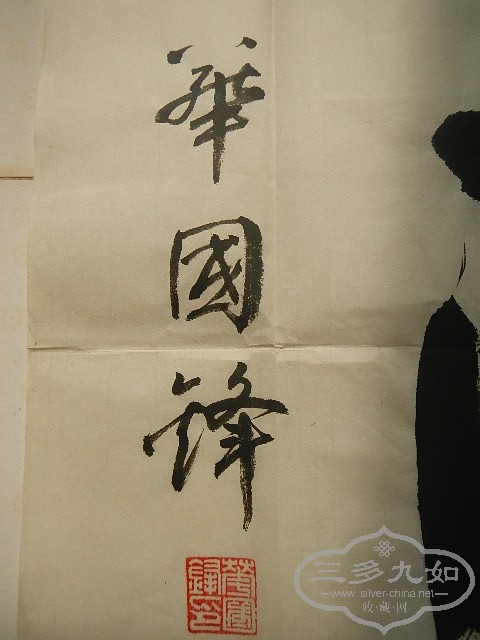 華國鋒
華國鋒印
三多九如
www.silver-china.net
收·藏·网